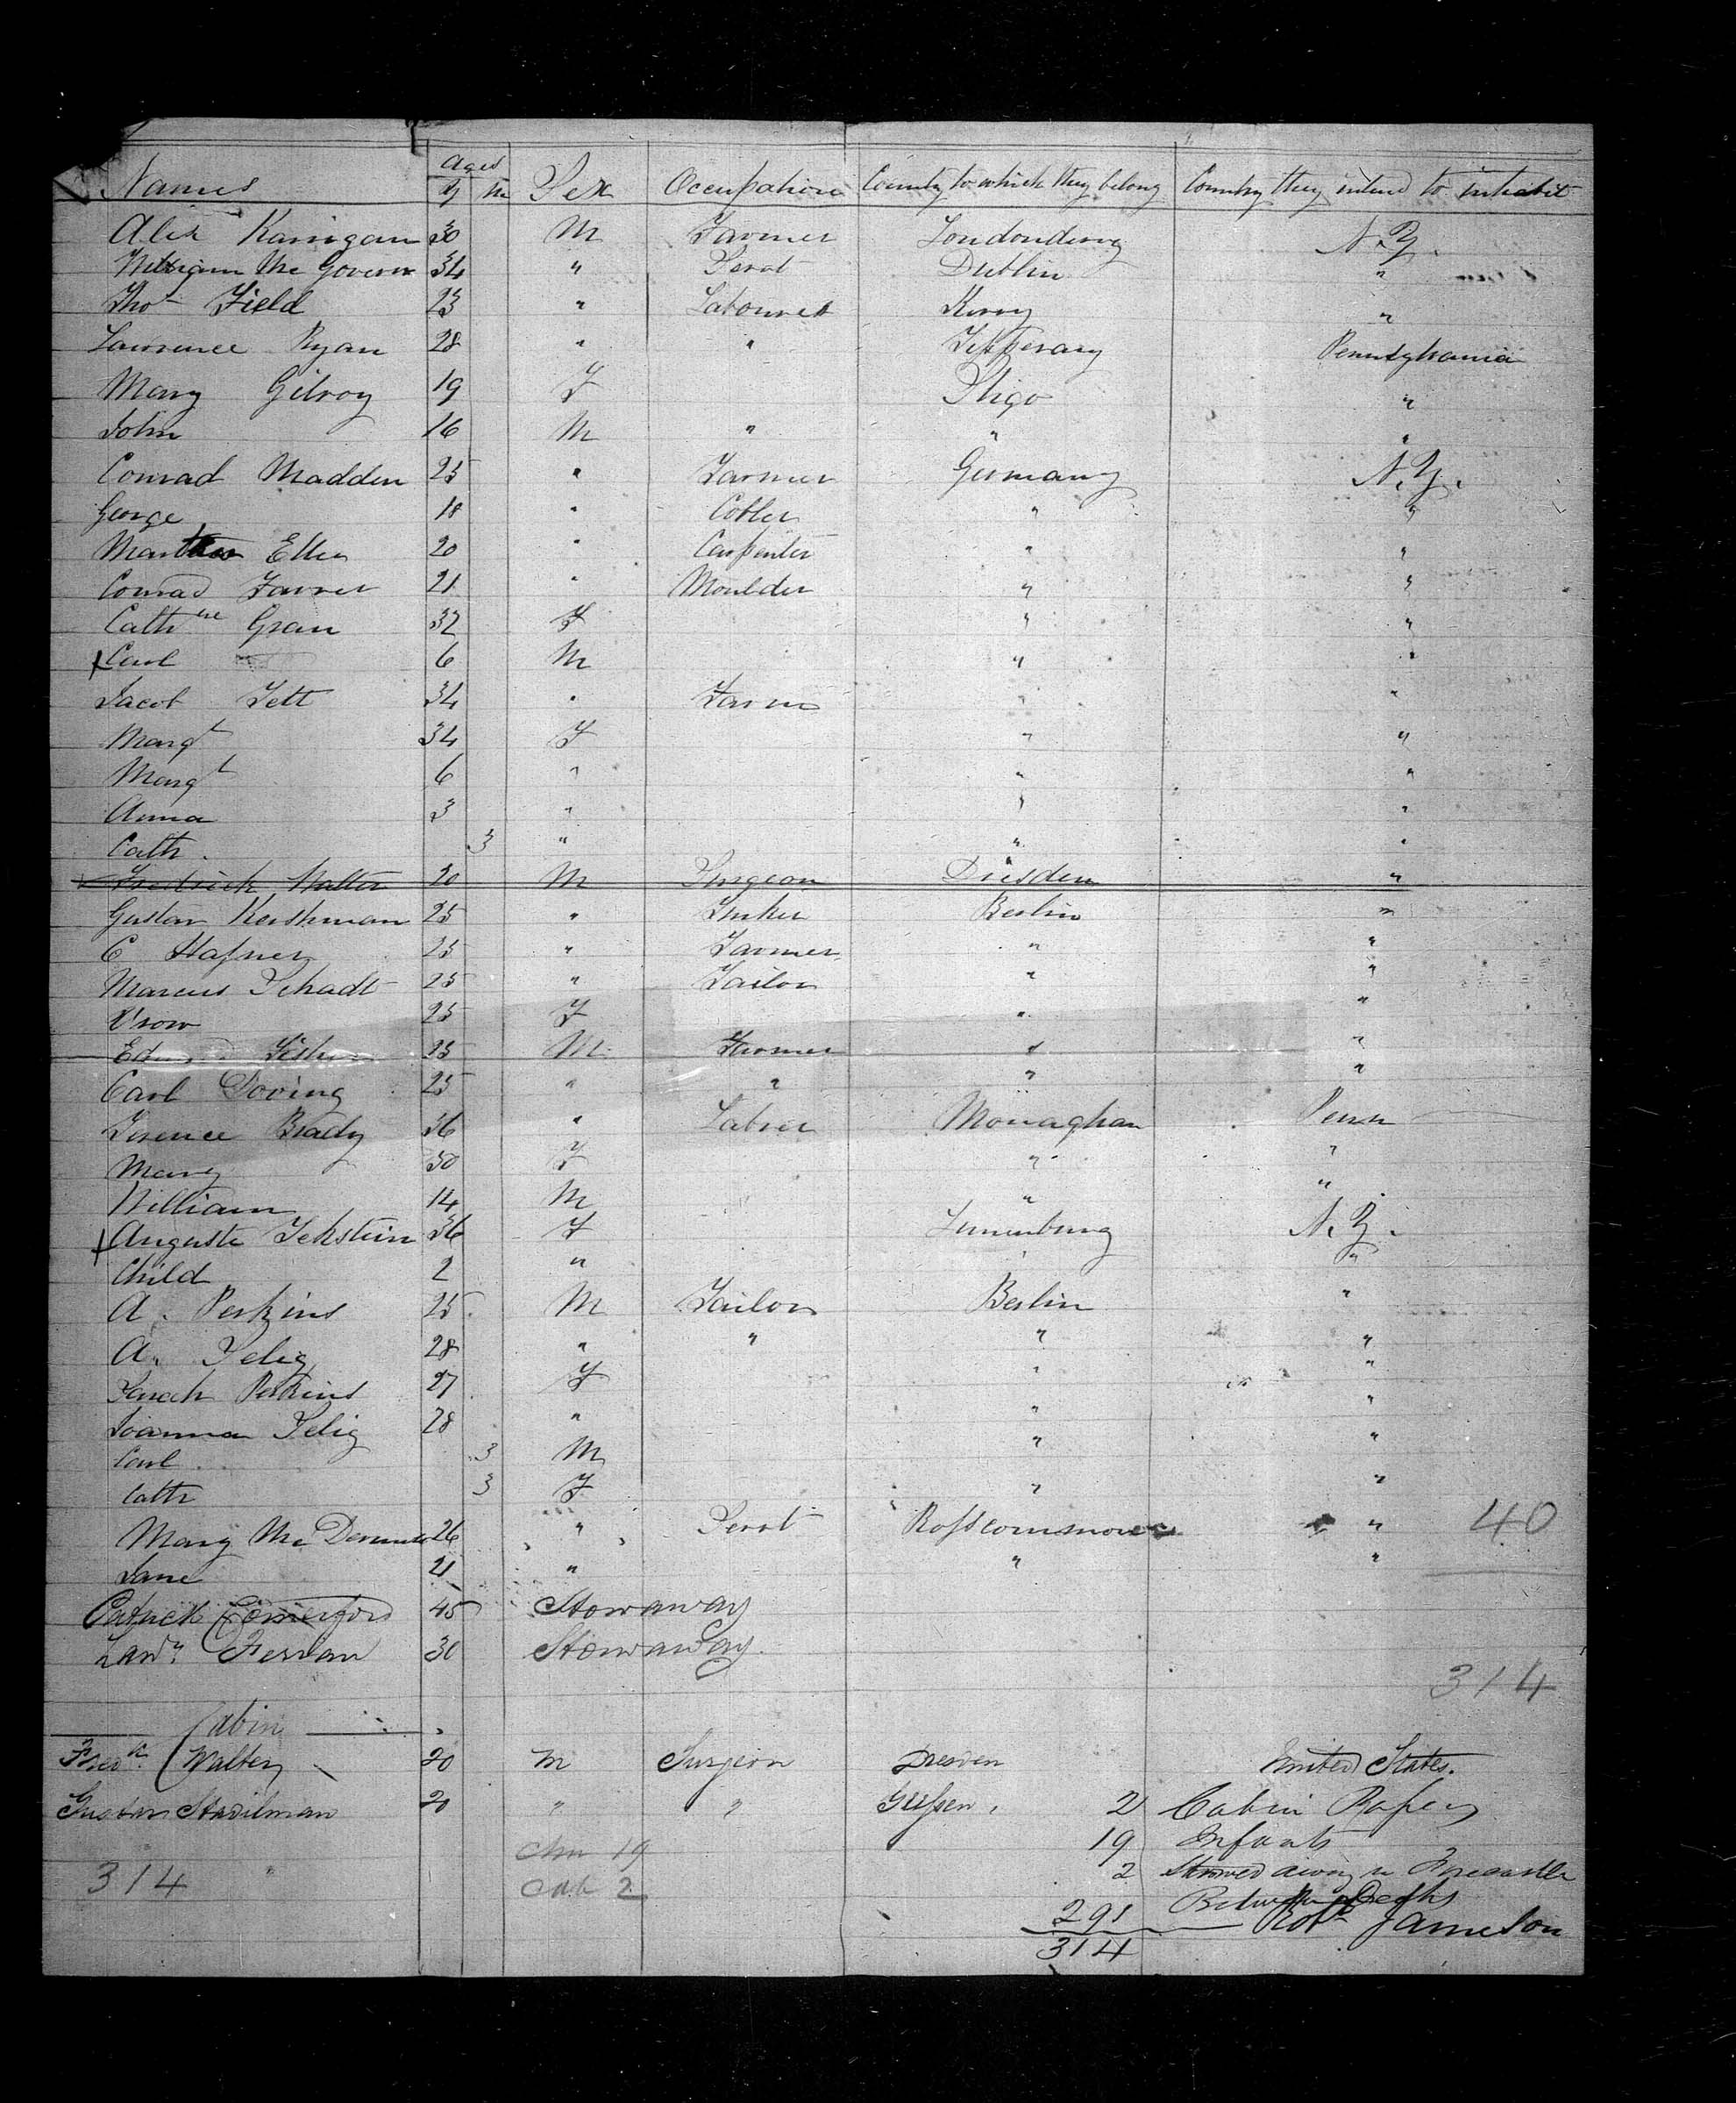 Names Ages Y M Sex Occupation Country to which they belong Country they intend to inhabit
Alex 30 M Farmer Londonderry N.Y.
William Mc Govern 34 " Servt Dublin "
Thos Field 23 " Labourer Kerry "
Lawrence Ryan 28 " " Tipperary Pennsylvania
Mary Gilroy 19 F Sligo "
John 16 M " " "
Conrad Madden 25 " Farmer Germany N.Y.
George 18 " Cobler " "
Ellen 20 " Carpenter " "
Conrad 21 " Moulder " "
Cathne Gran 32 F " "
Carl 6 M " "
Jacob Fett 34 " Farm " "
Margt 34 F " "
Margt 6 " " "
Anna 3 " " "
Cath. 3 " " "
Fredrick Walter 20 M Surgeon Dresden "
Gustav Kershman 25 " Berlin "
C Hafner 25 " Farmer " "
Marcus Schadt 25 " Tailor " "
Vrow 25 F " "
25 M Farmer " "
Carl Doving 25 " " " "
Terence Brady 36 " Labrer Monaghan Penn
Mary 30 F " "
William 14 M " "
Auguste Sekstein 36 F Lunenburg N.Y.
Child 2 " " "
A. Perkins 25 M Tailor Berlin "
A. Selig 28 " " " "
Sarah Perkins 27 F " "
Joanna Selig 28 " " "
Carl 3 M " "
Cath 3 F " "
Mary Mc 26 " Servt Rosscommon " 40
Jane 21 " " "
Patrick Comerford 45 Stowaway
Lawr. 30 Stowaway.
314
Cabin
Fredk. Walter 20 M Surgeon Dresden United States.
Gustav 20 " " Giessen. 2 Cabin
Chn 19 19 Infants
314 " Cab 2 2 Stowed away in Forecastle
291 Between Decks
Robt Jameson
314